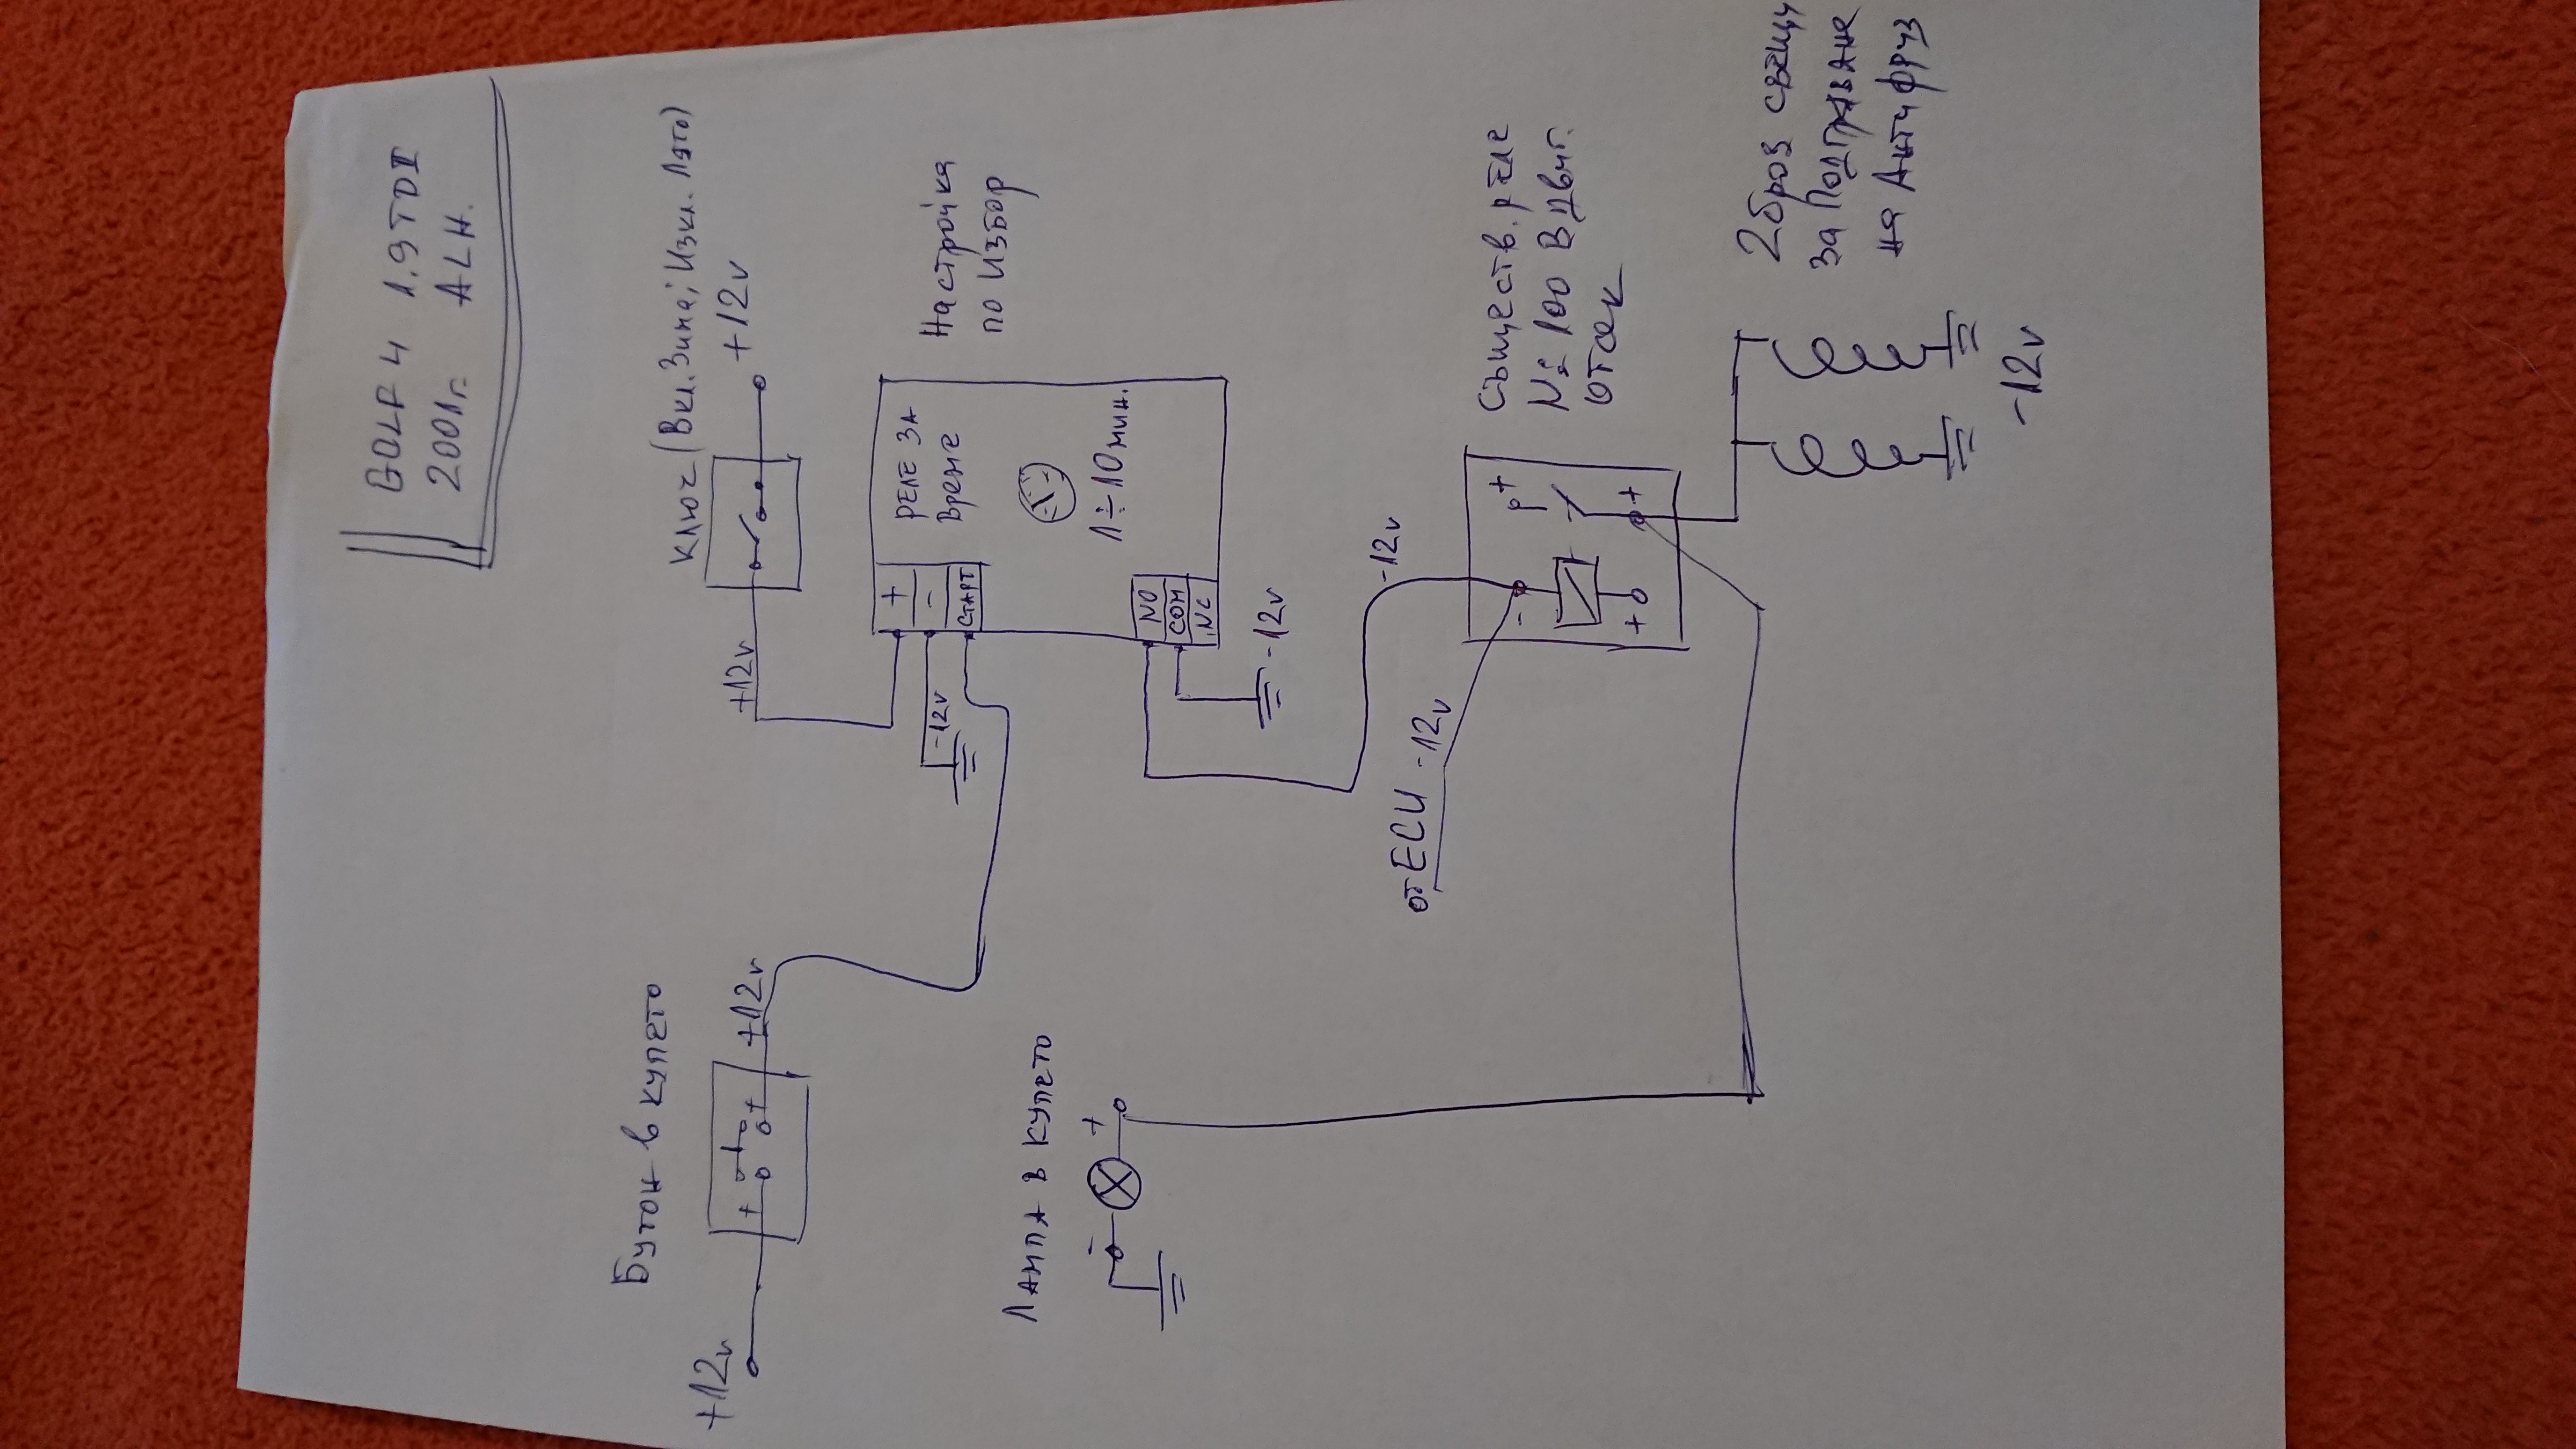 GOLF 4 1.9 TDI
2001г. ALH.
Бутон в купето
Ключ (Вкл. Зима; Изкл. Лято)
+12v
+
+
+12v
+12v
+12v
+
-
СТАРТ
РЕЛЕ ЗА
Време
1÷10 мин.
NO
COM
NC
-12v
-12v
Настройка
по Избор
Лампа в купето
-
+
от ECU -12v
-12v
-
+
+
+
Съществ. реле
№ 100 В двиг.
отсек
2 броя свещи
за Подгряване
на Антифриз
-12v